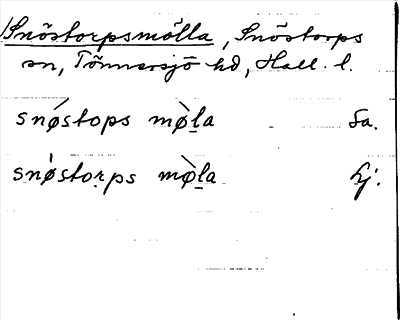 Snöstorpsmölla, Snöstorps
sn, Tönnersjö hd, Hall. l.
snǿstops mø̀la Sa.
snǿstorps mø̀la Lj.